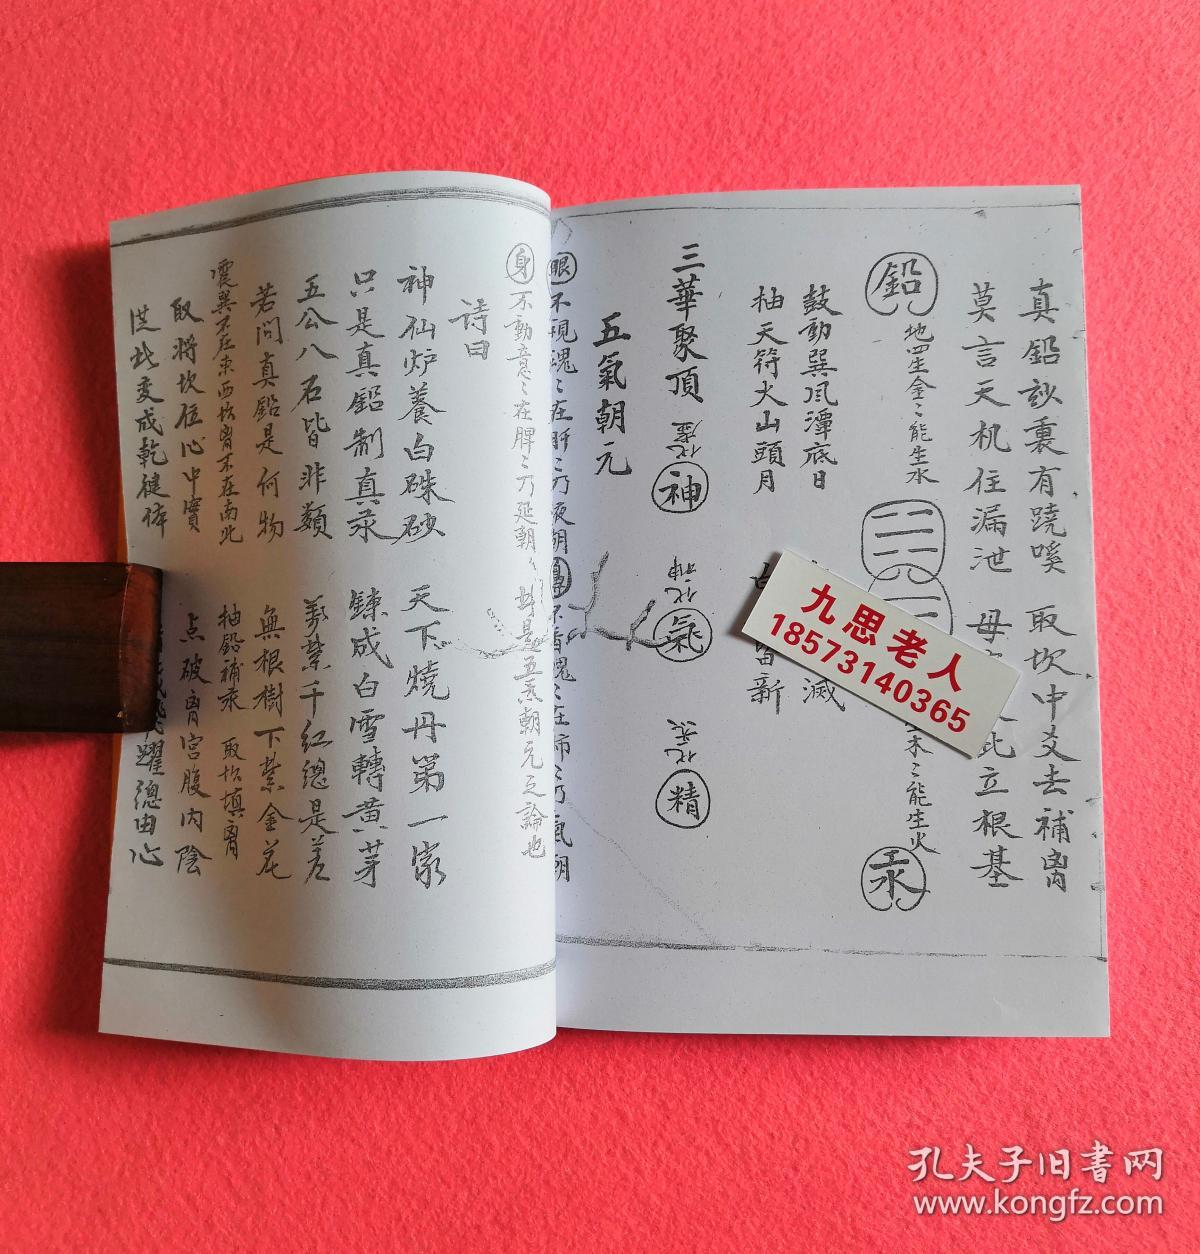 真鉛妙裏有蹺嘆 取坎中爻去補离
莫言天机住漏泄 母 此立根基
鉛 地罡金〻能生水 木〻能生火 汞
鼓動巽风潭底日 滅
柚天符火山頭月 皆新
三華聚頂 化虛 神 化神 氣 化炁 精
五氣朝元
眼不視魂〻在肝〻乃液朝 不香魄〻在肺〻乃氣朝
身不動意〻在脾〻乃延朝 是五炁朝元之論也
詩曰
神仙炉養白硃砂 天下燒丹第一家
只是真鉛制真汞 鍊成白雪轉黄芽
五公八石皆非類 萬紫千红總是差
若问真鉛是何物 無根樹下紫金花
震巽不在東西坎离不在南北 柚鉛補汞 取坎填离
取将坎位心中實 点破离宫腹内陰
従此变成乾健体 躍總由心
九思老人
18573140365
孔夫子旧書网
www.kongfz.com